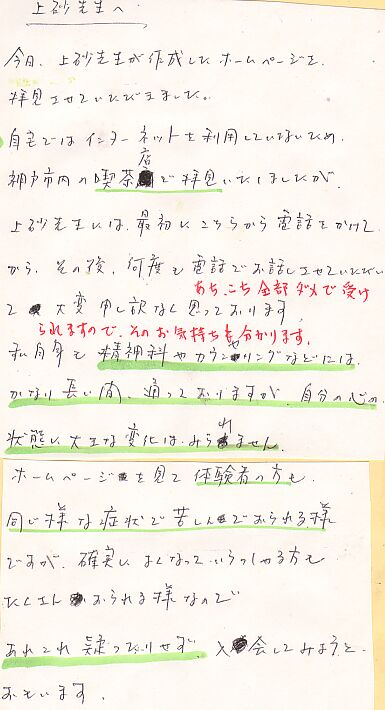 上砂先生へ
今日、上砂先生が作成したホームページを、
拝見させていただきました。
自宅ではインターネットを利用していないため、
神戸市内の喫茶店で拝見いたしましたが、
上砂先生には、最初にこちらから電話をかけて
から、その後、何度も電話でお話しさせていただい
て 大変申し訳なく思っております。
あち、こち全部ダメで受け
られますので、そのお気持ち分かります。
私自身も精神科やカウンセリングなどには、
かなり長い間、通っておりますが、自分の心の
状態に大きな変化はみられません。
ホームページを見て体験者の方も、
同じ様な症状で苦しんでおられる様
ですが、確実によくなっていらっしゃる方も
たくさんおられる様なので
あれこれ疑ったりせず、入会してみようと、
おもいます。